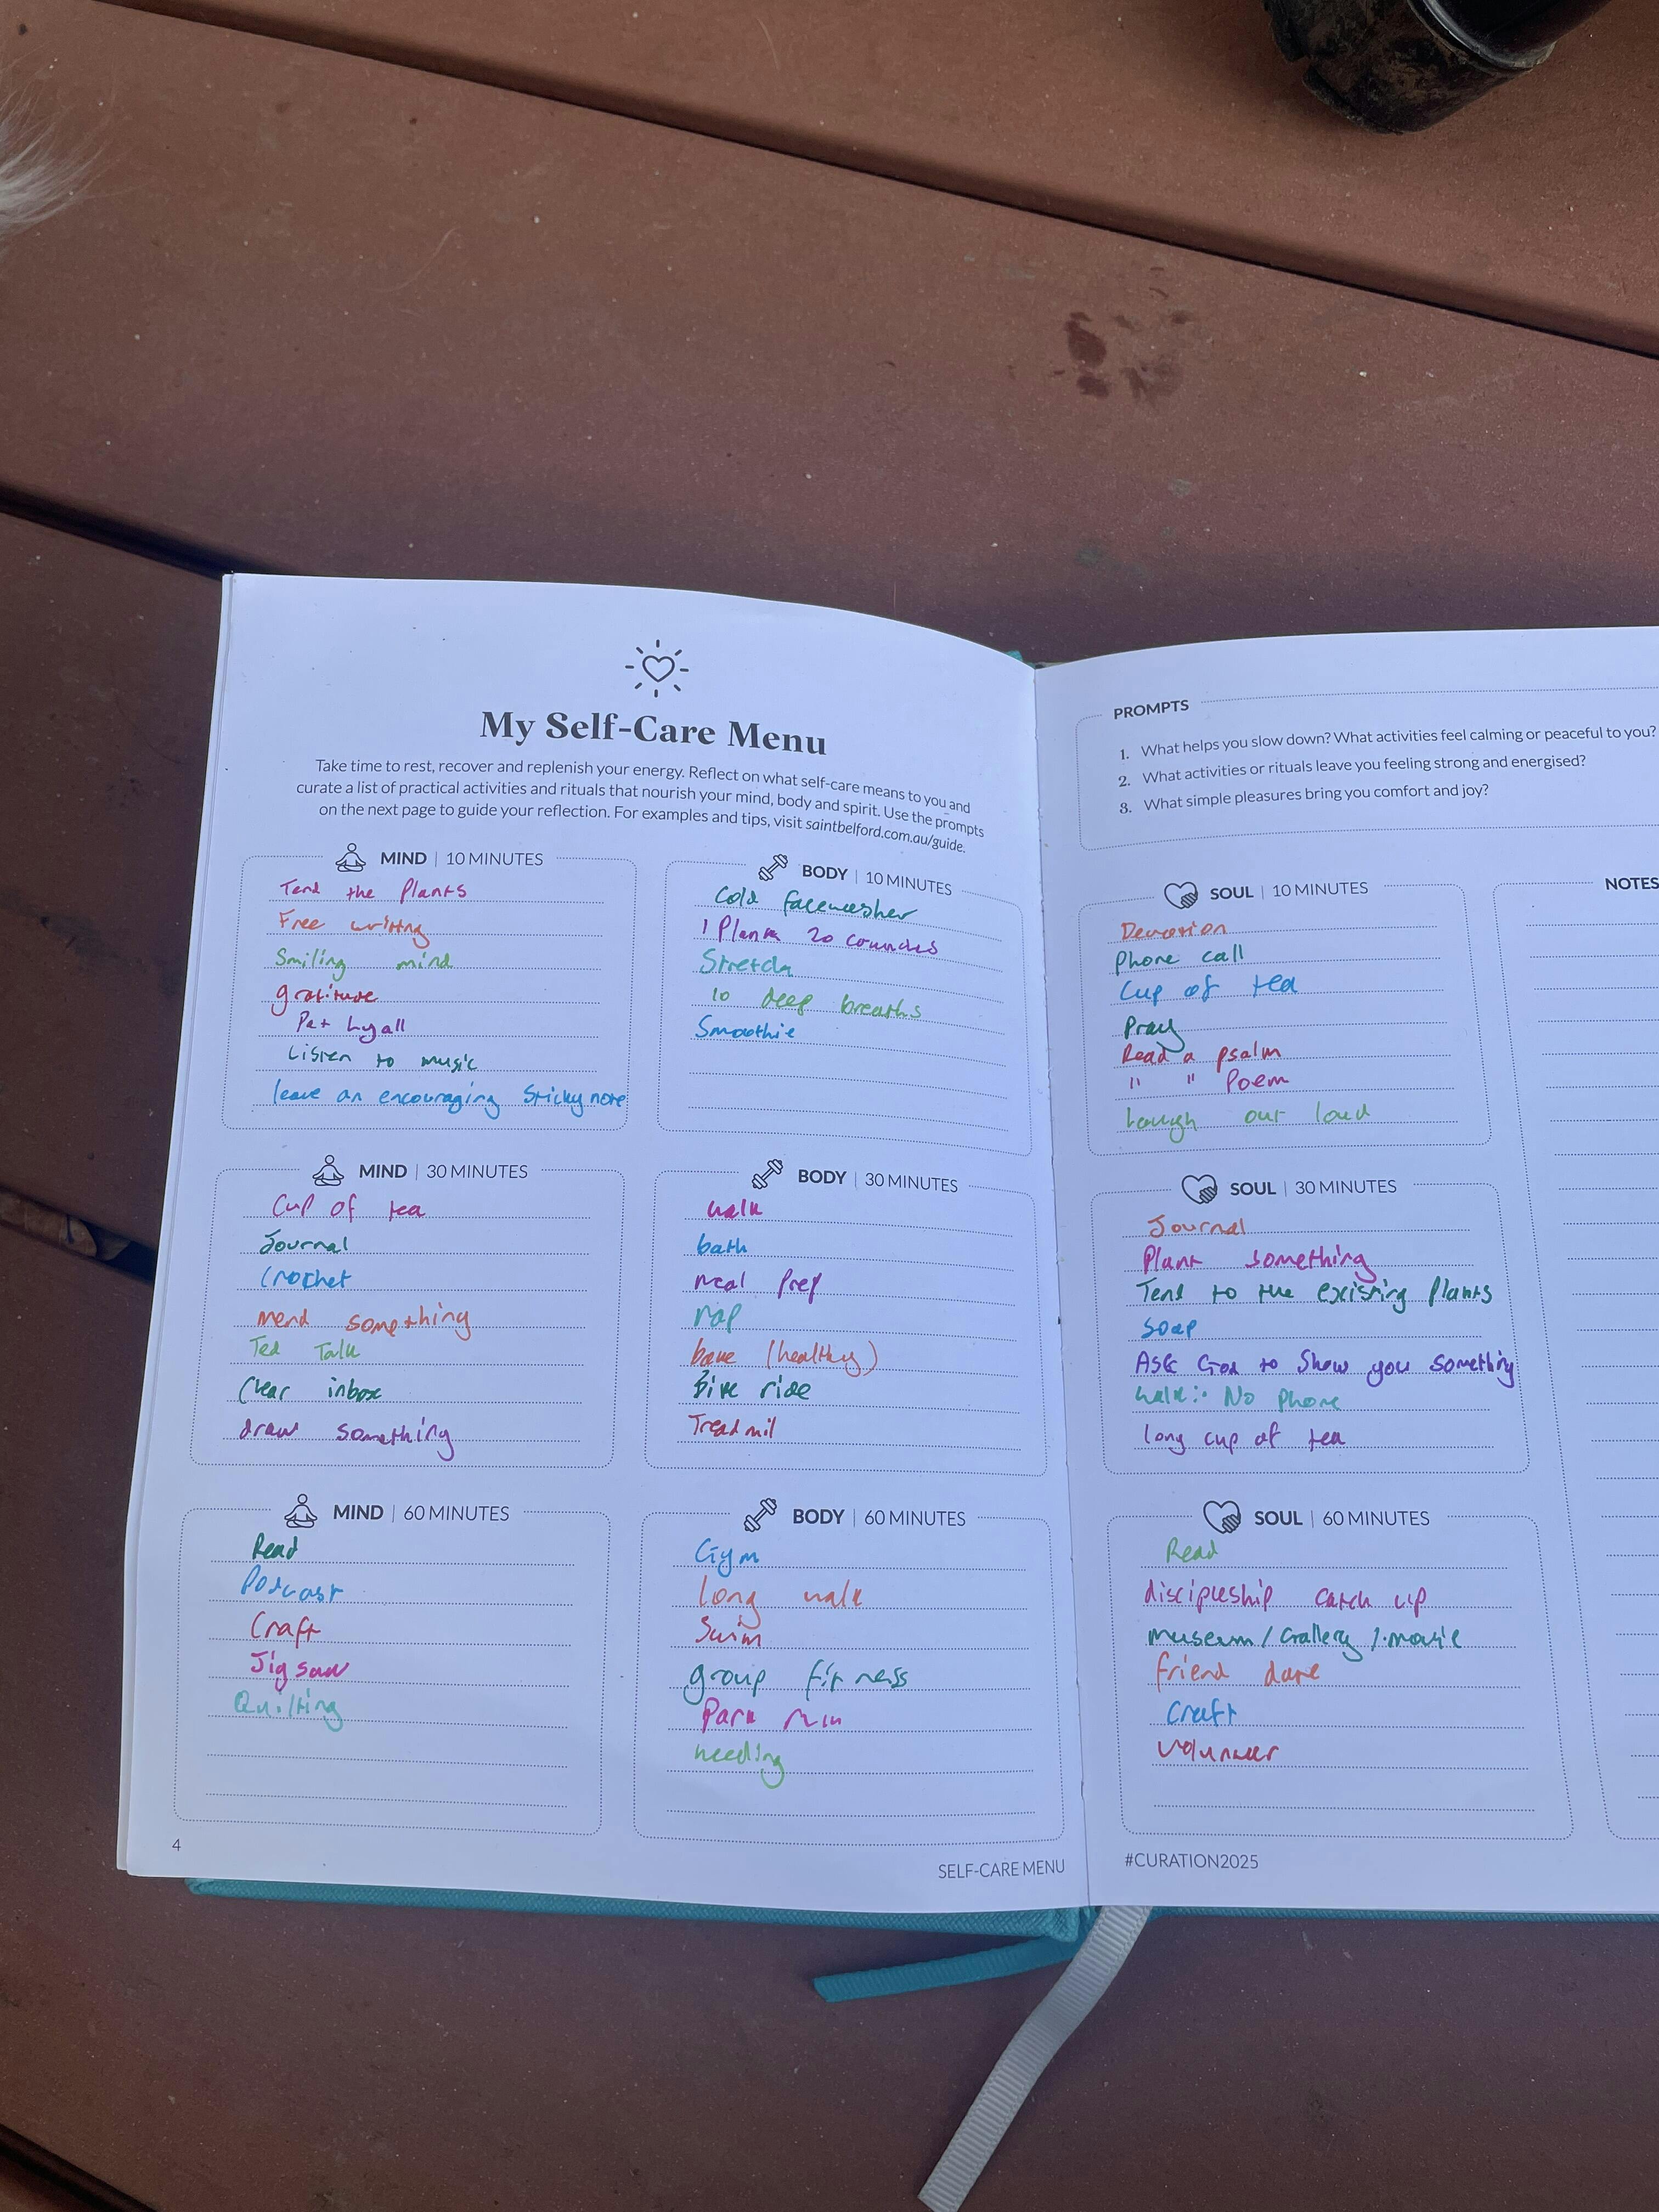 My Self-Care Menu
Take time to rest, recover and replenish your energy. Reflect on what self-care means to you and
curate a list of practical activities and rituals that nourish your mind, body and spirit. Use the prompts
on the next page to guide your reflection. For examples and tips, visit saintbelford.com.au/guide.
MIND | 10 MINUTES
Tend the Plants
Free writing
Smiling mind
gratitude
Pat hyall
Listen to music
leave an encouraging Sticky note
BODY | 10 MINUTES
Cold facewasher
1 Plank 20 crunches
Stretch
10 deep breaths
Smoothie
MIND | 30 MINUTES
Cup of tea
Journal
Crochet
mend something
Ted Talk
Clear inbox
draw something
BODY | 30 MINUTES
walk
bath
meal prep
nap
bake (healthy)
Bike ride
Treadmil
MIND | 60 MINUTES
Read
Podcast
Craft
Jigsaw
Quilting
BODY | 60 MINUTES
Gym
long walk
Swim
group fitness
Park run
weeding
4
SELF-CARE MENU
PROMPTS
1. What helps you slow down? What activities feel calming or peaceful to you?
2. What activities or rituals leave you feeling strong and energised?
3. What simple pleasures bring you comfort and joy?
SOUL | 10 MINUTES
Devotion
Phone call
Cup of tea
Pray
Read a psalm
" " Poem
Laugh out loud
NOTES
SOUL | 30 MINUTES
Journal
Plant something
Tend to the existing plants
Soap
Ask God to Show you Something
walk: No Phone
long cup of tea
SOUL | 60 MINUTES
Read
discipleship catch up
museum / Gallery / movie
friend date
Craft
volunteer
#CURATION2025